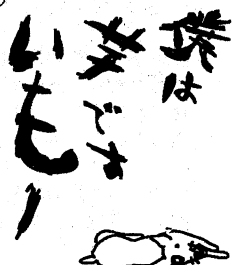 僕は
多です
いもー